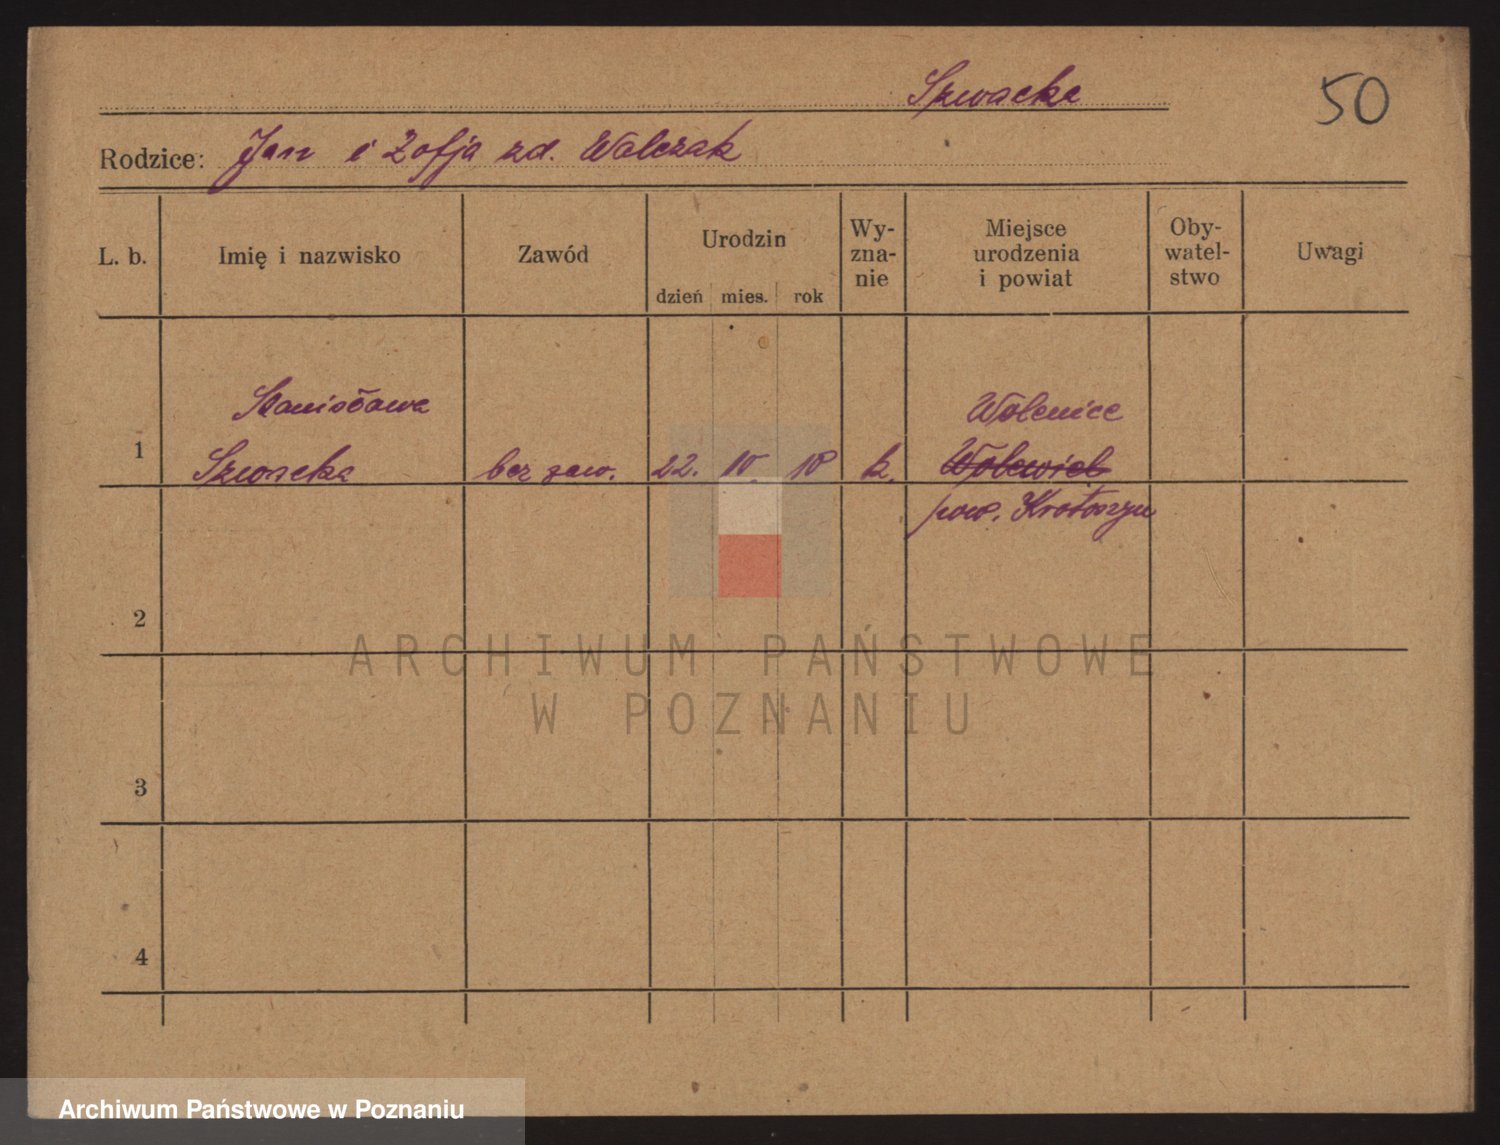 Szwacka
50
Rodzice: Jan i Zofja zd. Walczak
L. b. Imię i nazwisko Zawód Urodzin dzień mies. rok Wy-zna-nie Miejsce urodzenia i powiat Oby-watel-stwo Uwagi
Stanisława Wolenice
1 Szwacka bez zaw. 22. 10. 18 k.
pow. Krotoszyn
2
ARCHIWUM PAŃSTWOWE
W POZNANIU
3
4
Archiwum Państwowe w Poznaniu